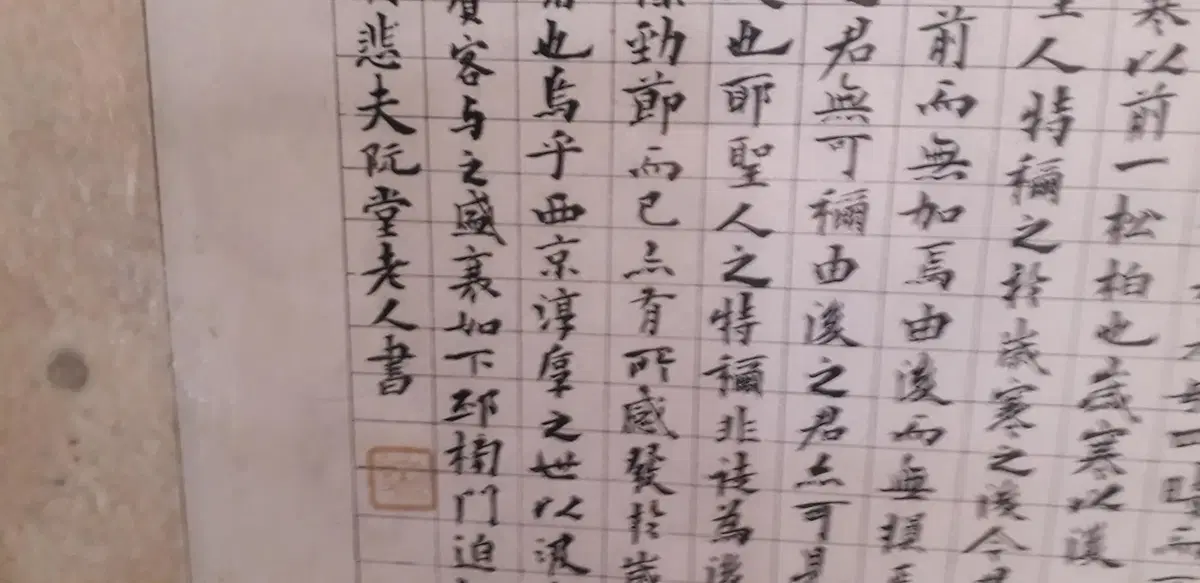 寒以前一松柏也歲寒以後
聖人特稱之於歲寒之後今
前而無加焉由後而無損
君無可稱由後之君亦可見
也耶聖人之特稱非徒為後
勁節而已亦有所感發於歲
也烏乎西京淳厚之世以汲
賓客与之盛衰如下邳榜門迫
悲夫阮堂老人書